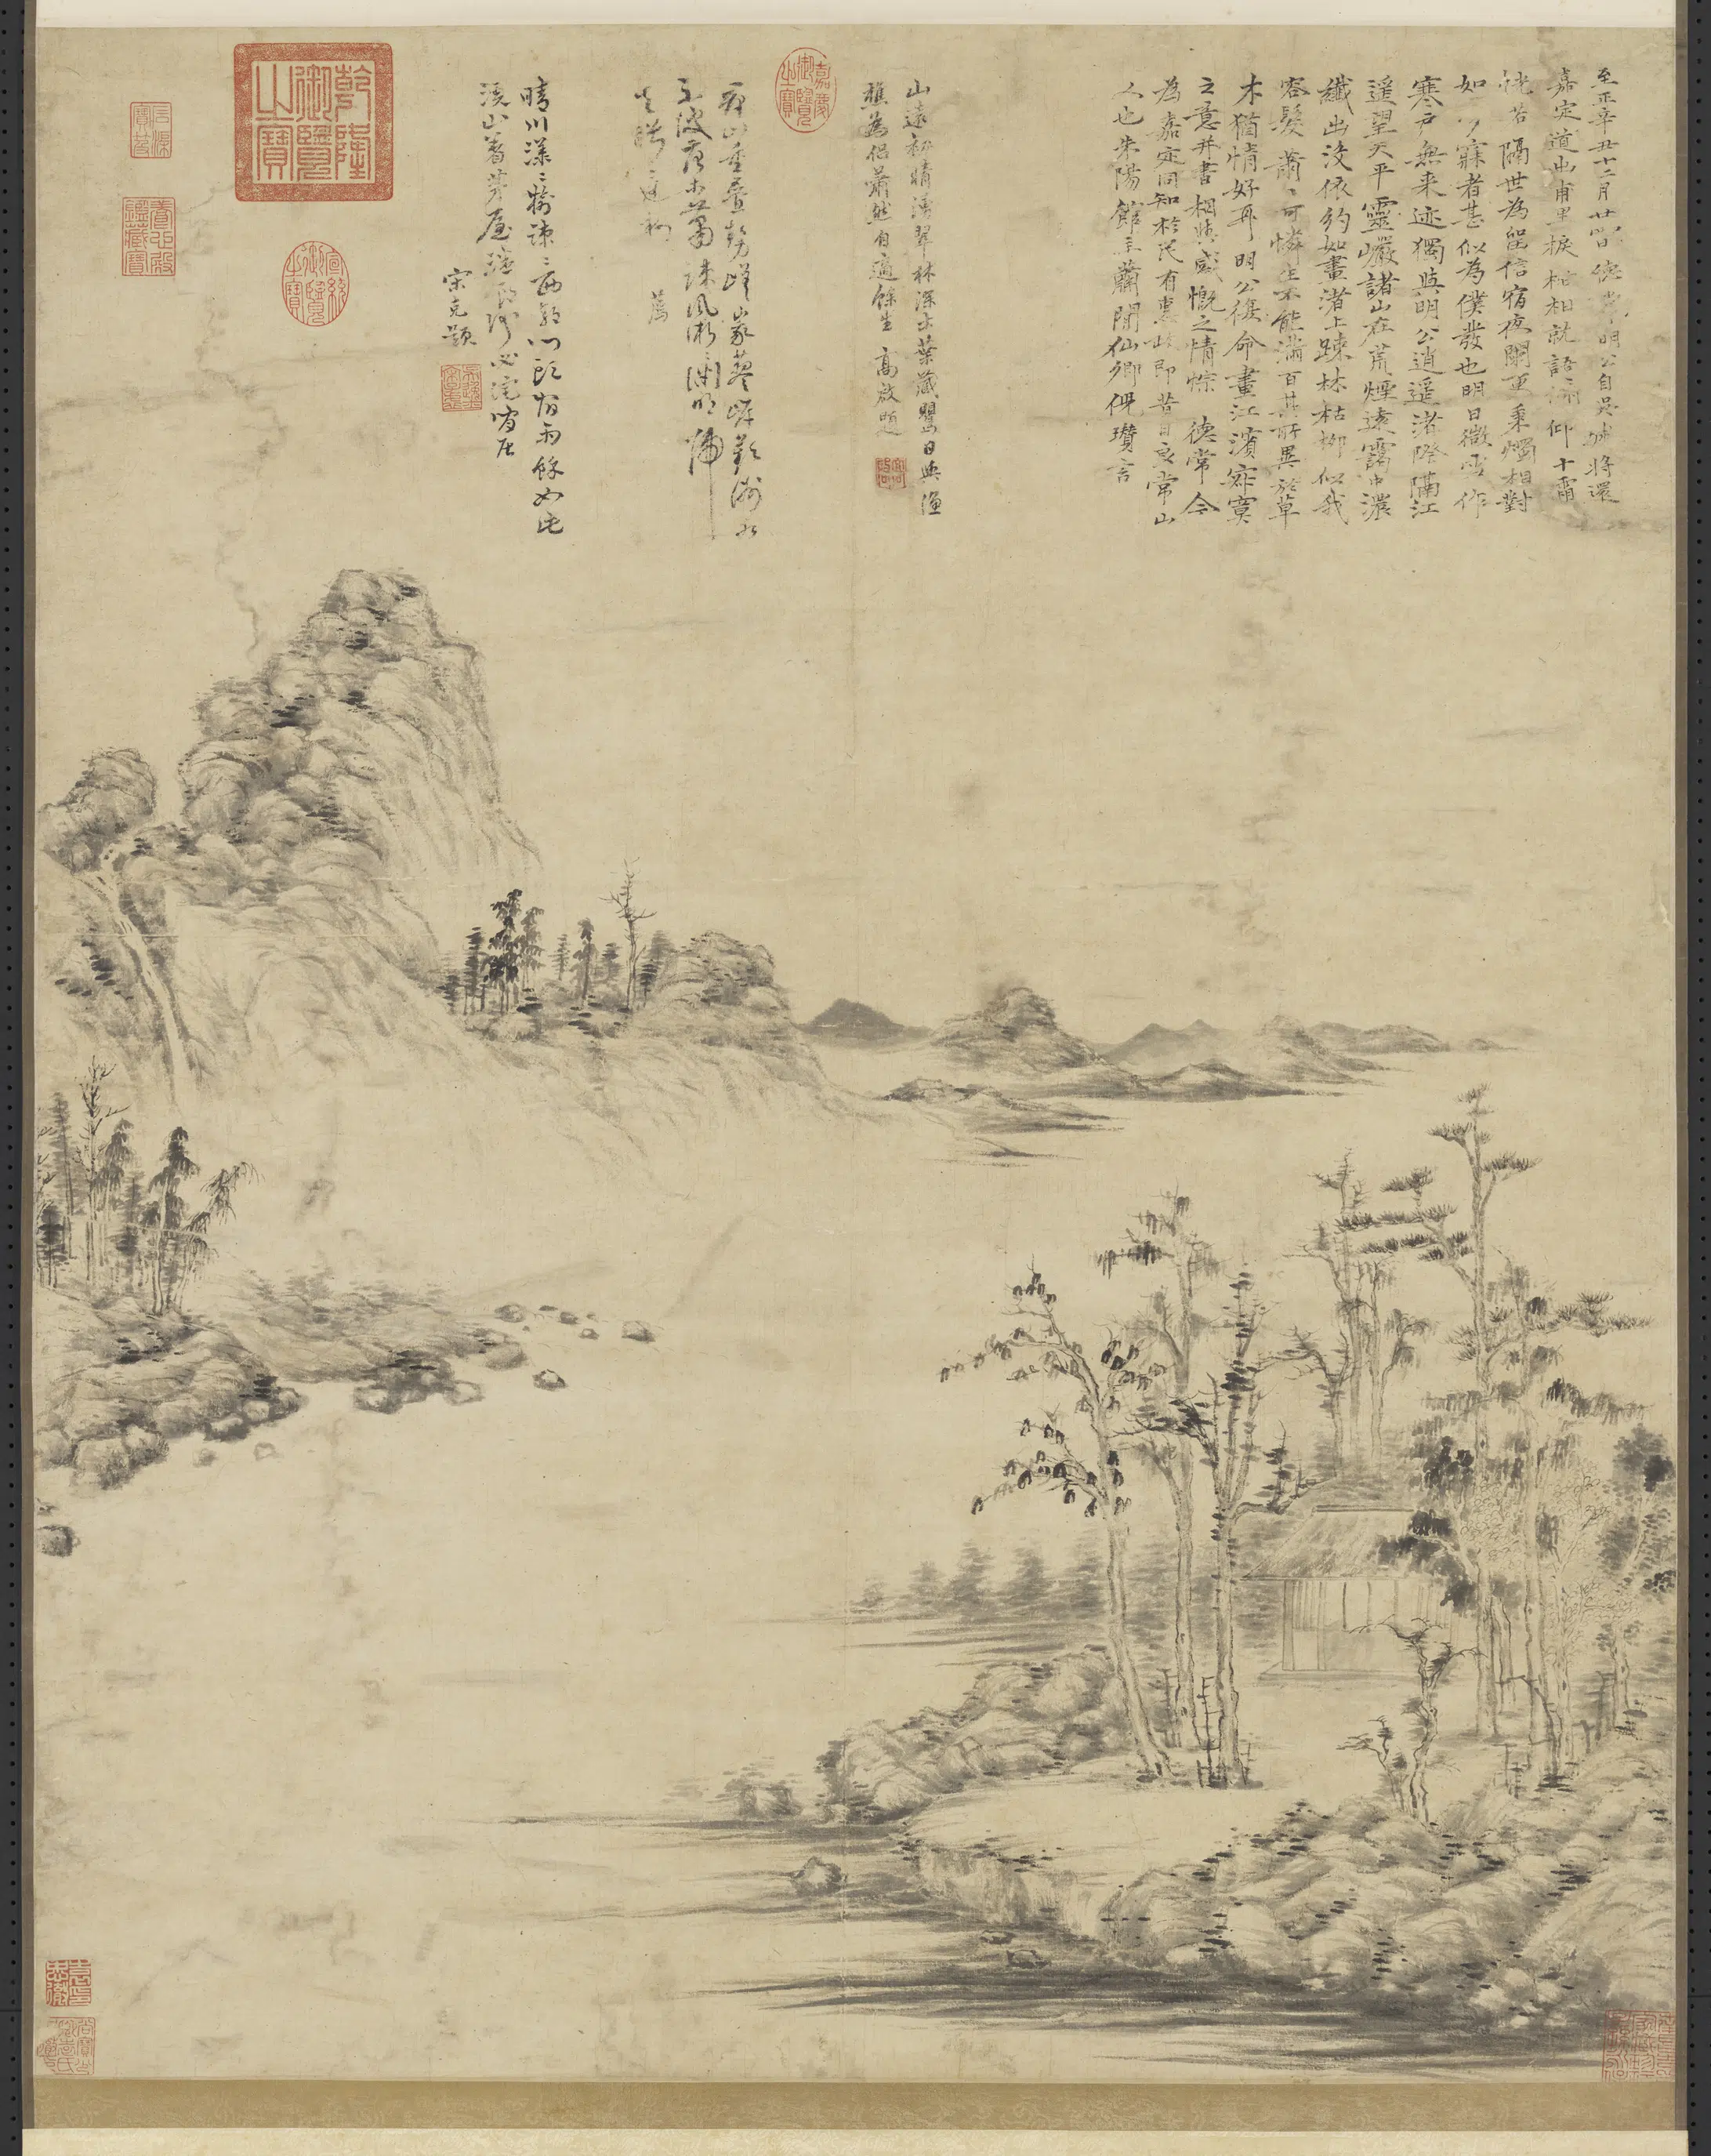 至正辛丑十二月廿四日德常明公自吳城將還
嘉定道出甫里捩柁相就語俯仰十霜
恍若隔世為留信宿夜闌更秉燭相對
如夢寐者甚似為僕發也明日微雪作
寒戶無來迹獨與明公逍遙渚際隔江
遙望天平靈巖諸山在荒煙遠靄中濃
纖出沒依約如畫渚上疎林枯柳似我
容髮蕭〻可憐生不能滿百其所異於草
木猶情好耳明公復命畫江濱寂寞
之意并書相與感慨之情悰德常今
為嘉定同知於民有惠政即昔日良常山
人也朱陽館主蕭閒仙卿倪瓚言
山遠初晴湧翠林深古葉藏鸎日與漁
樵為侶蕭然自適餘生 高啟題
嘉慶御覽之寶
晴川漾〻樹疎〻西郭門頭宿雨餘如此
溪山着茅屋
宋克題
乾隆御覽之寶
宣統御覽之寶
石渠寶笈
養心殿鑑藏寶